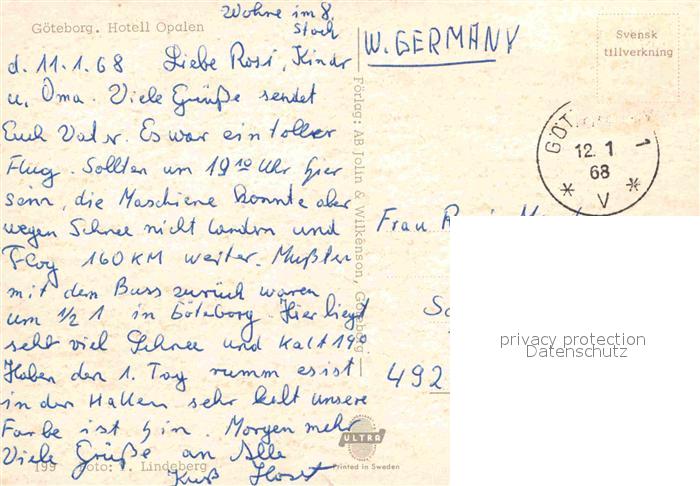 Wohne im 8.
Stock
Göteborg. Hotell Opalen
W. GERMANY
Svensk
tillverkning
d. 11.1.68 Liebe Rosi, Kinder
u. Oma. Viele Grüße sendet
Euch Vater. Es war ein toller
Flug. Sollten um 19 10 Uhr hier
sein, die Maschiene konnte aber
wegen Schnee nicht landen und
Flog 160 KM weiter. Mußten
mit dem Buss zurück waren
um 1/2 1 in Göteborg. Hier liegt
seht viel Schnee und kalt 19°
Haben den 1. Tag rumm es ist
in den Hallen sehr kalt unsere
Farbe ist hin. Morgen mehr
Viele Grüße an Alle
Kuß Horst
199 Foto: Lindeberg
Förlag: AB Jolin & Wilkênson, Göteborg
GÖT 1
12. 1
68
* V *
Frau
492
privacy protection
Datenschutz
ULTRA
Printed in Sweden